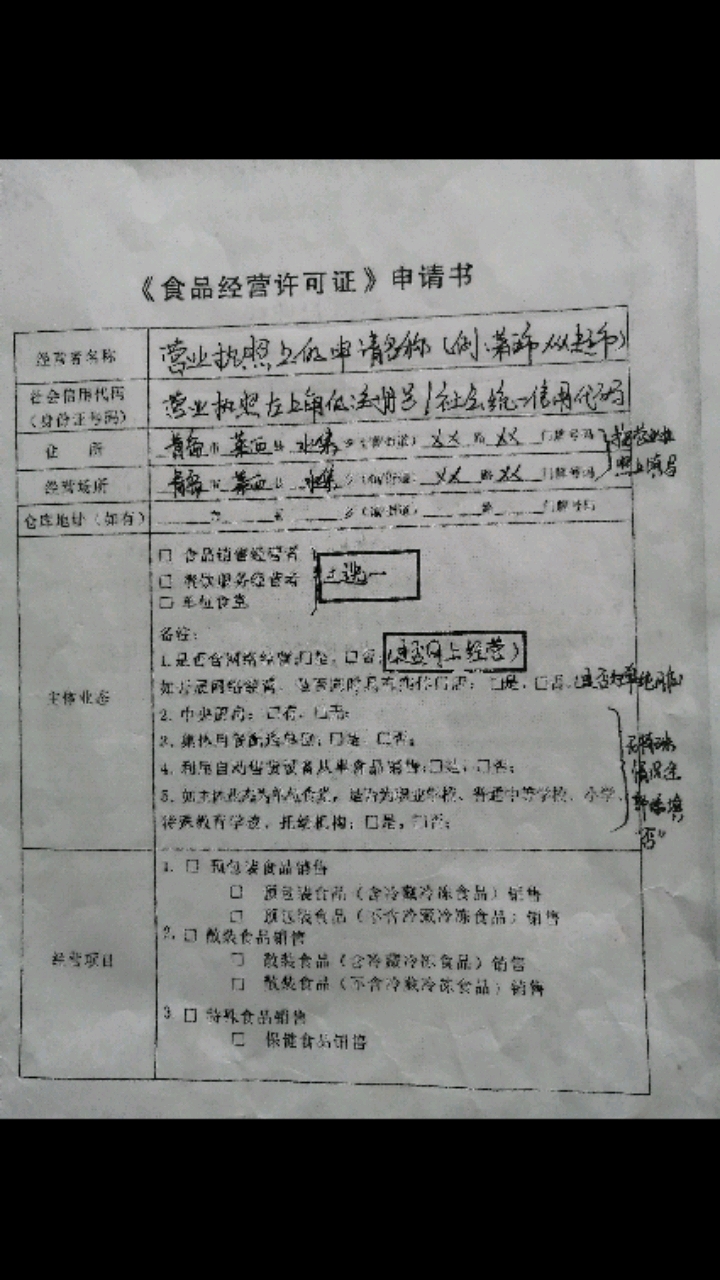 《食品经营许可证》申请书
经营者名称 营业执照上的申请名称（例:莱西市 超市）
社会信用代码
（身份证号码） 营业执照左上角的注册号/社会统一信用代码
住 所 青岛市 莱西县 水集乡（镇街道）XX路XX门牌号码
经营场所 青岛市 莱西县 水集乡（镇街道）XX路XX门牌号码
照上填写
仓库地址（如有） 市 县 乡（镇街道） 路 门牌号码
主体业态
□ 食品销售经营者
□ 餐饮服务经营者
□ 单位食堂
三选一
备注：
1.是否含网络经营:□是，□否; (是否网上经营)
□是，□否;
2. 中央厨房: □有，□否;
3. 集体用餐配送单位: □是，□否;
4. 利用自动售货设备从事食品销售:□是，□否;
5. 如主体业态为单位食堂，是否为职业学校、普通中等学校、小学、
特殊教育学校、托幼机构: □是，□否;
无特殊
情况全
部填
"否"
经营项目
1. □ 预包装食品销售
□ 预包装食品（含冷藏冷冻食品）销售
□ 预包装食品（不含冷藏冷冻食品）销售
2. □ 散装食品销售
□ 散装食品（含冷藏冷冻食品）销售
□ 散装食品（不含冷藏冷冻食品）销售
3 □ 特殊食品销售
□ 保健食品销售